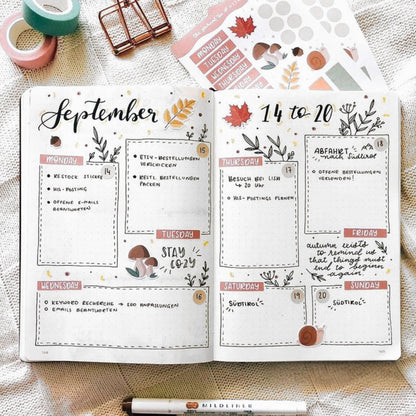 September
14 to 20
MONDAY
14
RESTOCK STICKER
IG-POSTING
OFFENE E-MAILS
BEANTWORTEN
15
ETSY-BESTELLUNGEN
VERSCHICKEN
BESTELLUNGEN
PACKEN
TUESDAY
STAY
COZY
WEDNESDAY
16
KEYWORD RECHERCHE → SEO ANPASSUNGEN
EMAILS BEANTWORTEN
THURSDAY
17
BESUCH BEI LISH
↳ 20 Uhr
IG-POSTINGS PLANEN
18
ABFAHRT
nach Südtirol
OFFENE BESTELLUNGEN
VERSENDEN!
FRIDAY
autumn exists to
remind us
that things must
end to begin
again.
SATURDAY
19
SÜDTIROL
20
SUNDAY
SÜDTIROL
MONDAY
TUESDAY
WEDNESDAY
THURSDAY
MILDLINER